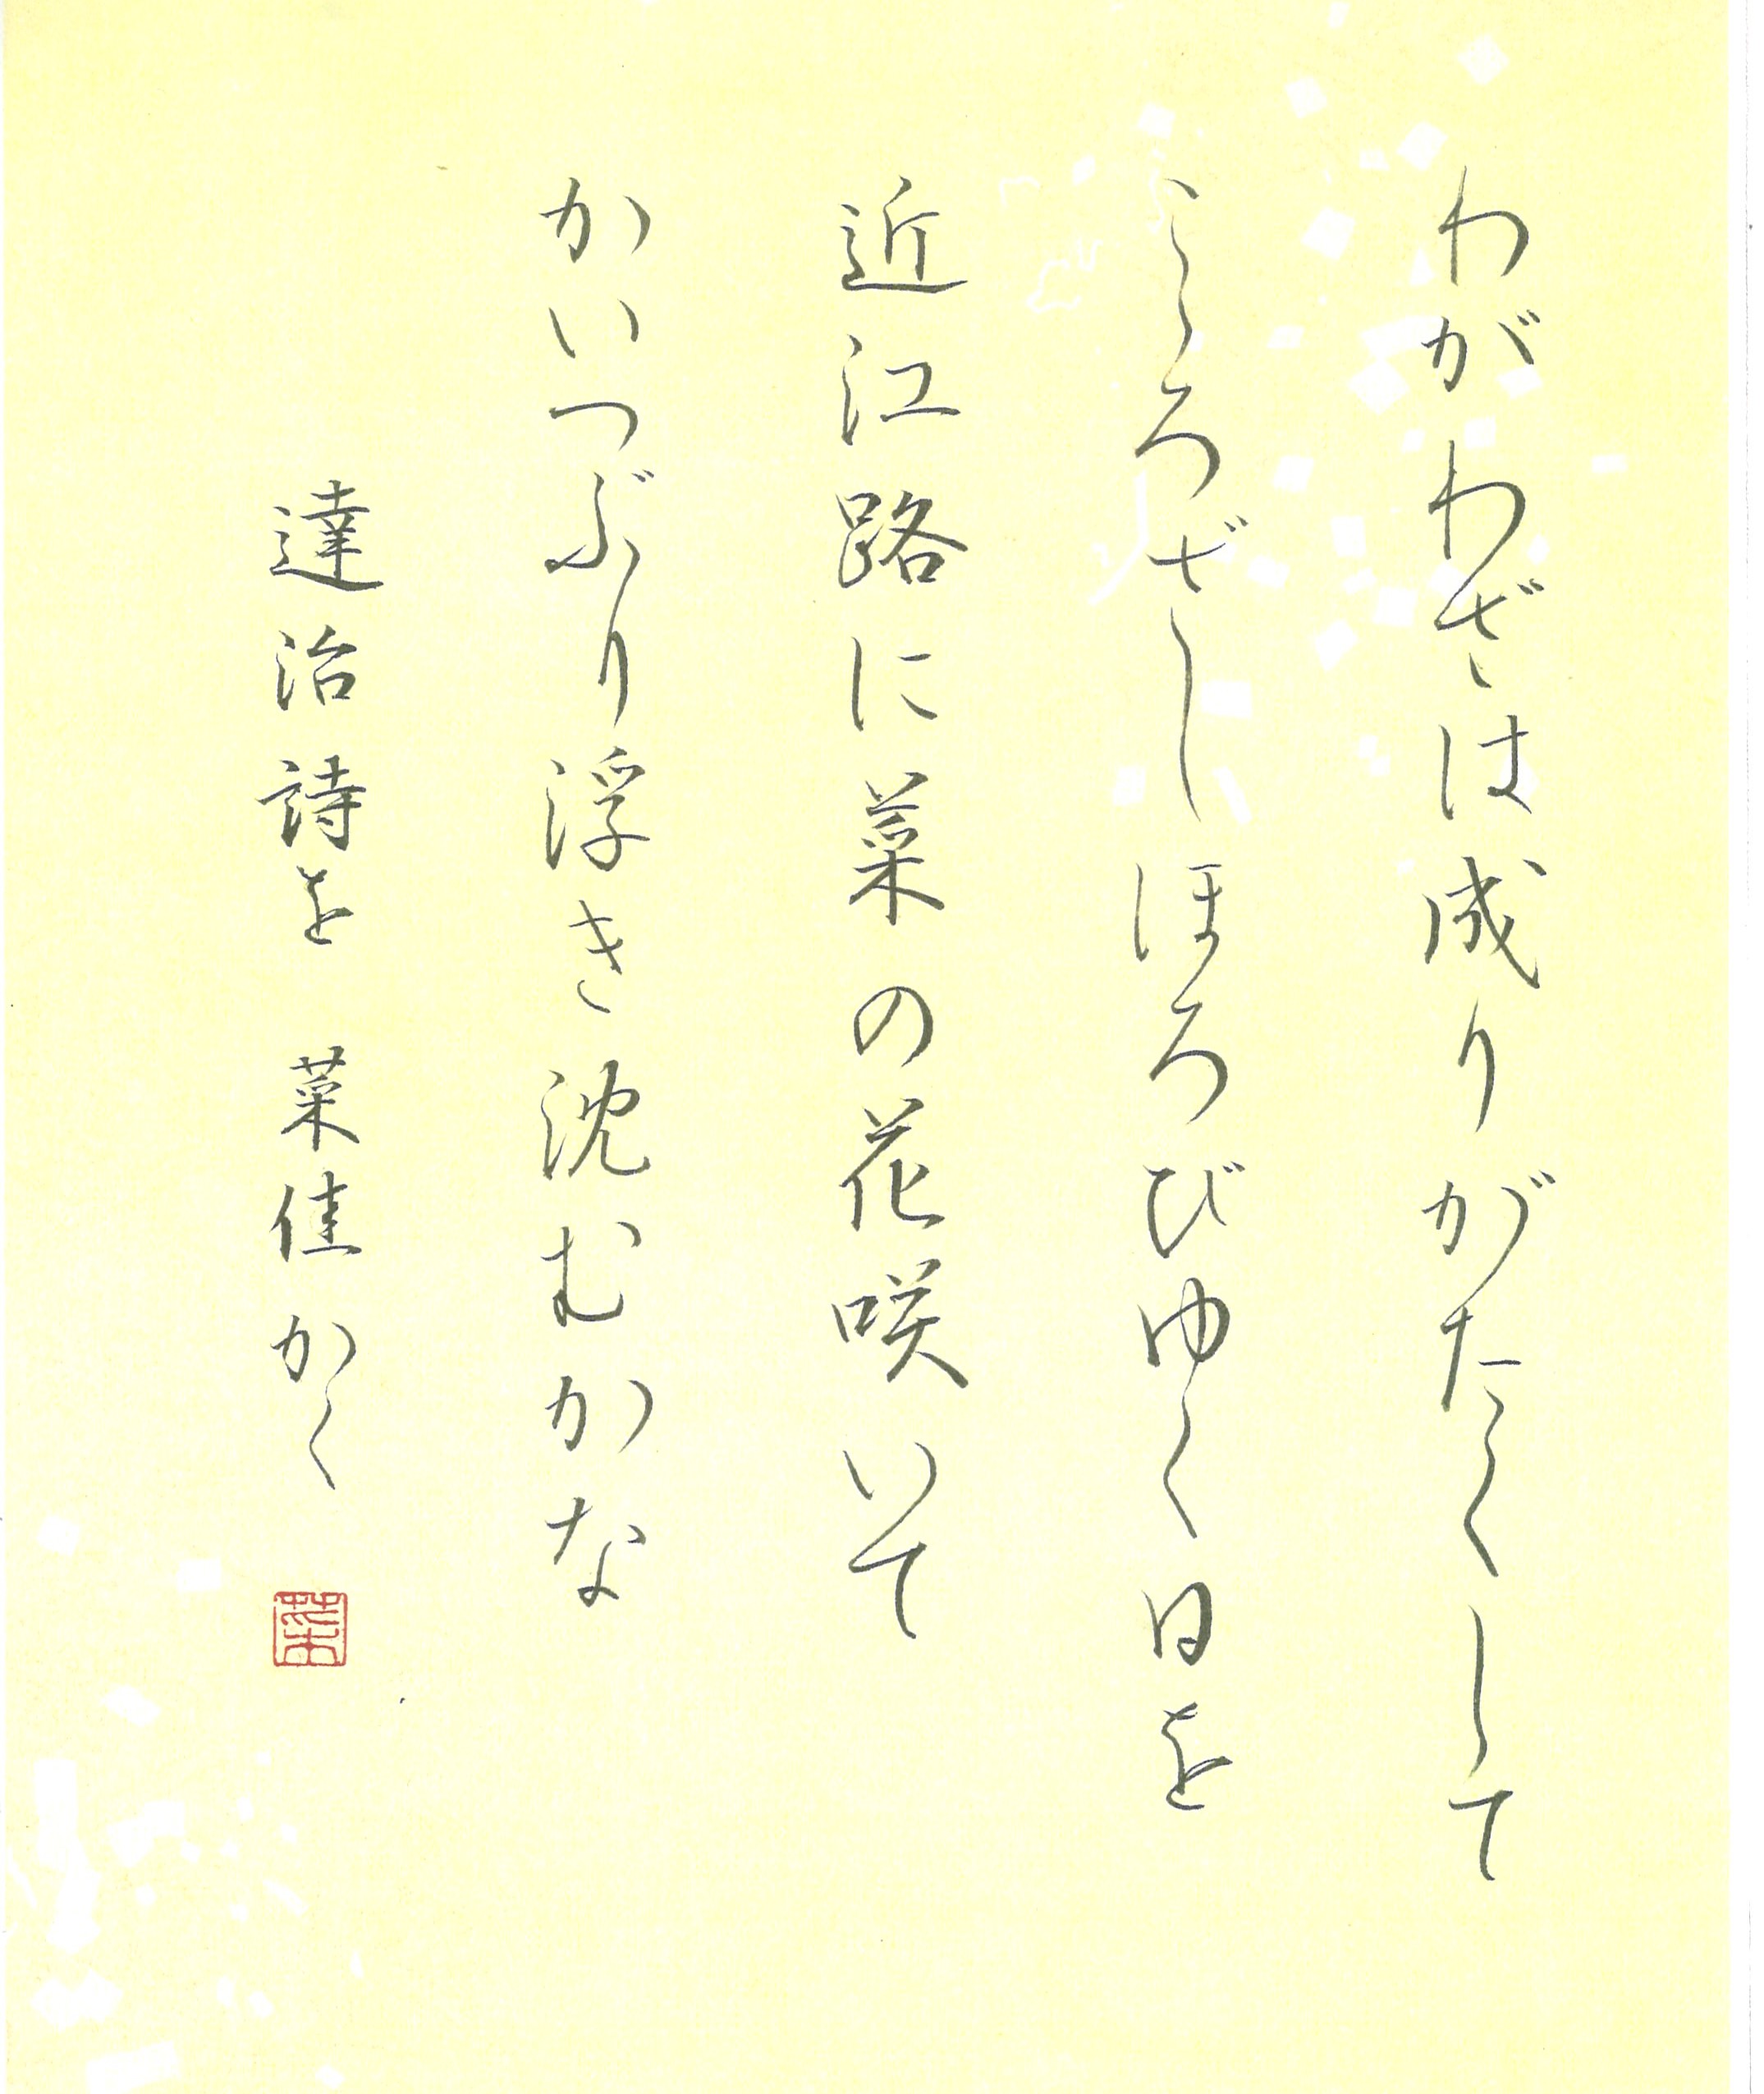 わがわざは成りがたくして
こゝろざしほろびゆく日を
近江路に菜の花咲いて
かいつぶり浮き沈むかな
達治詩を 菜佳かく
菜